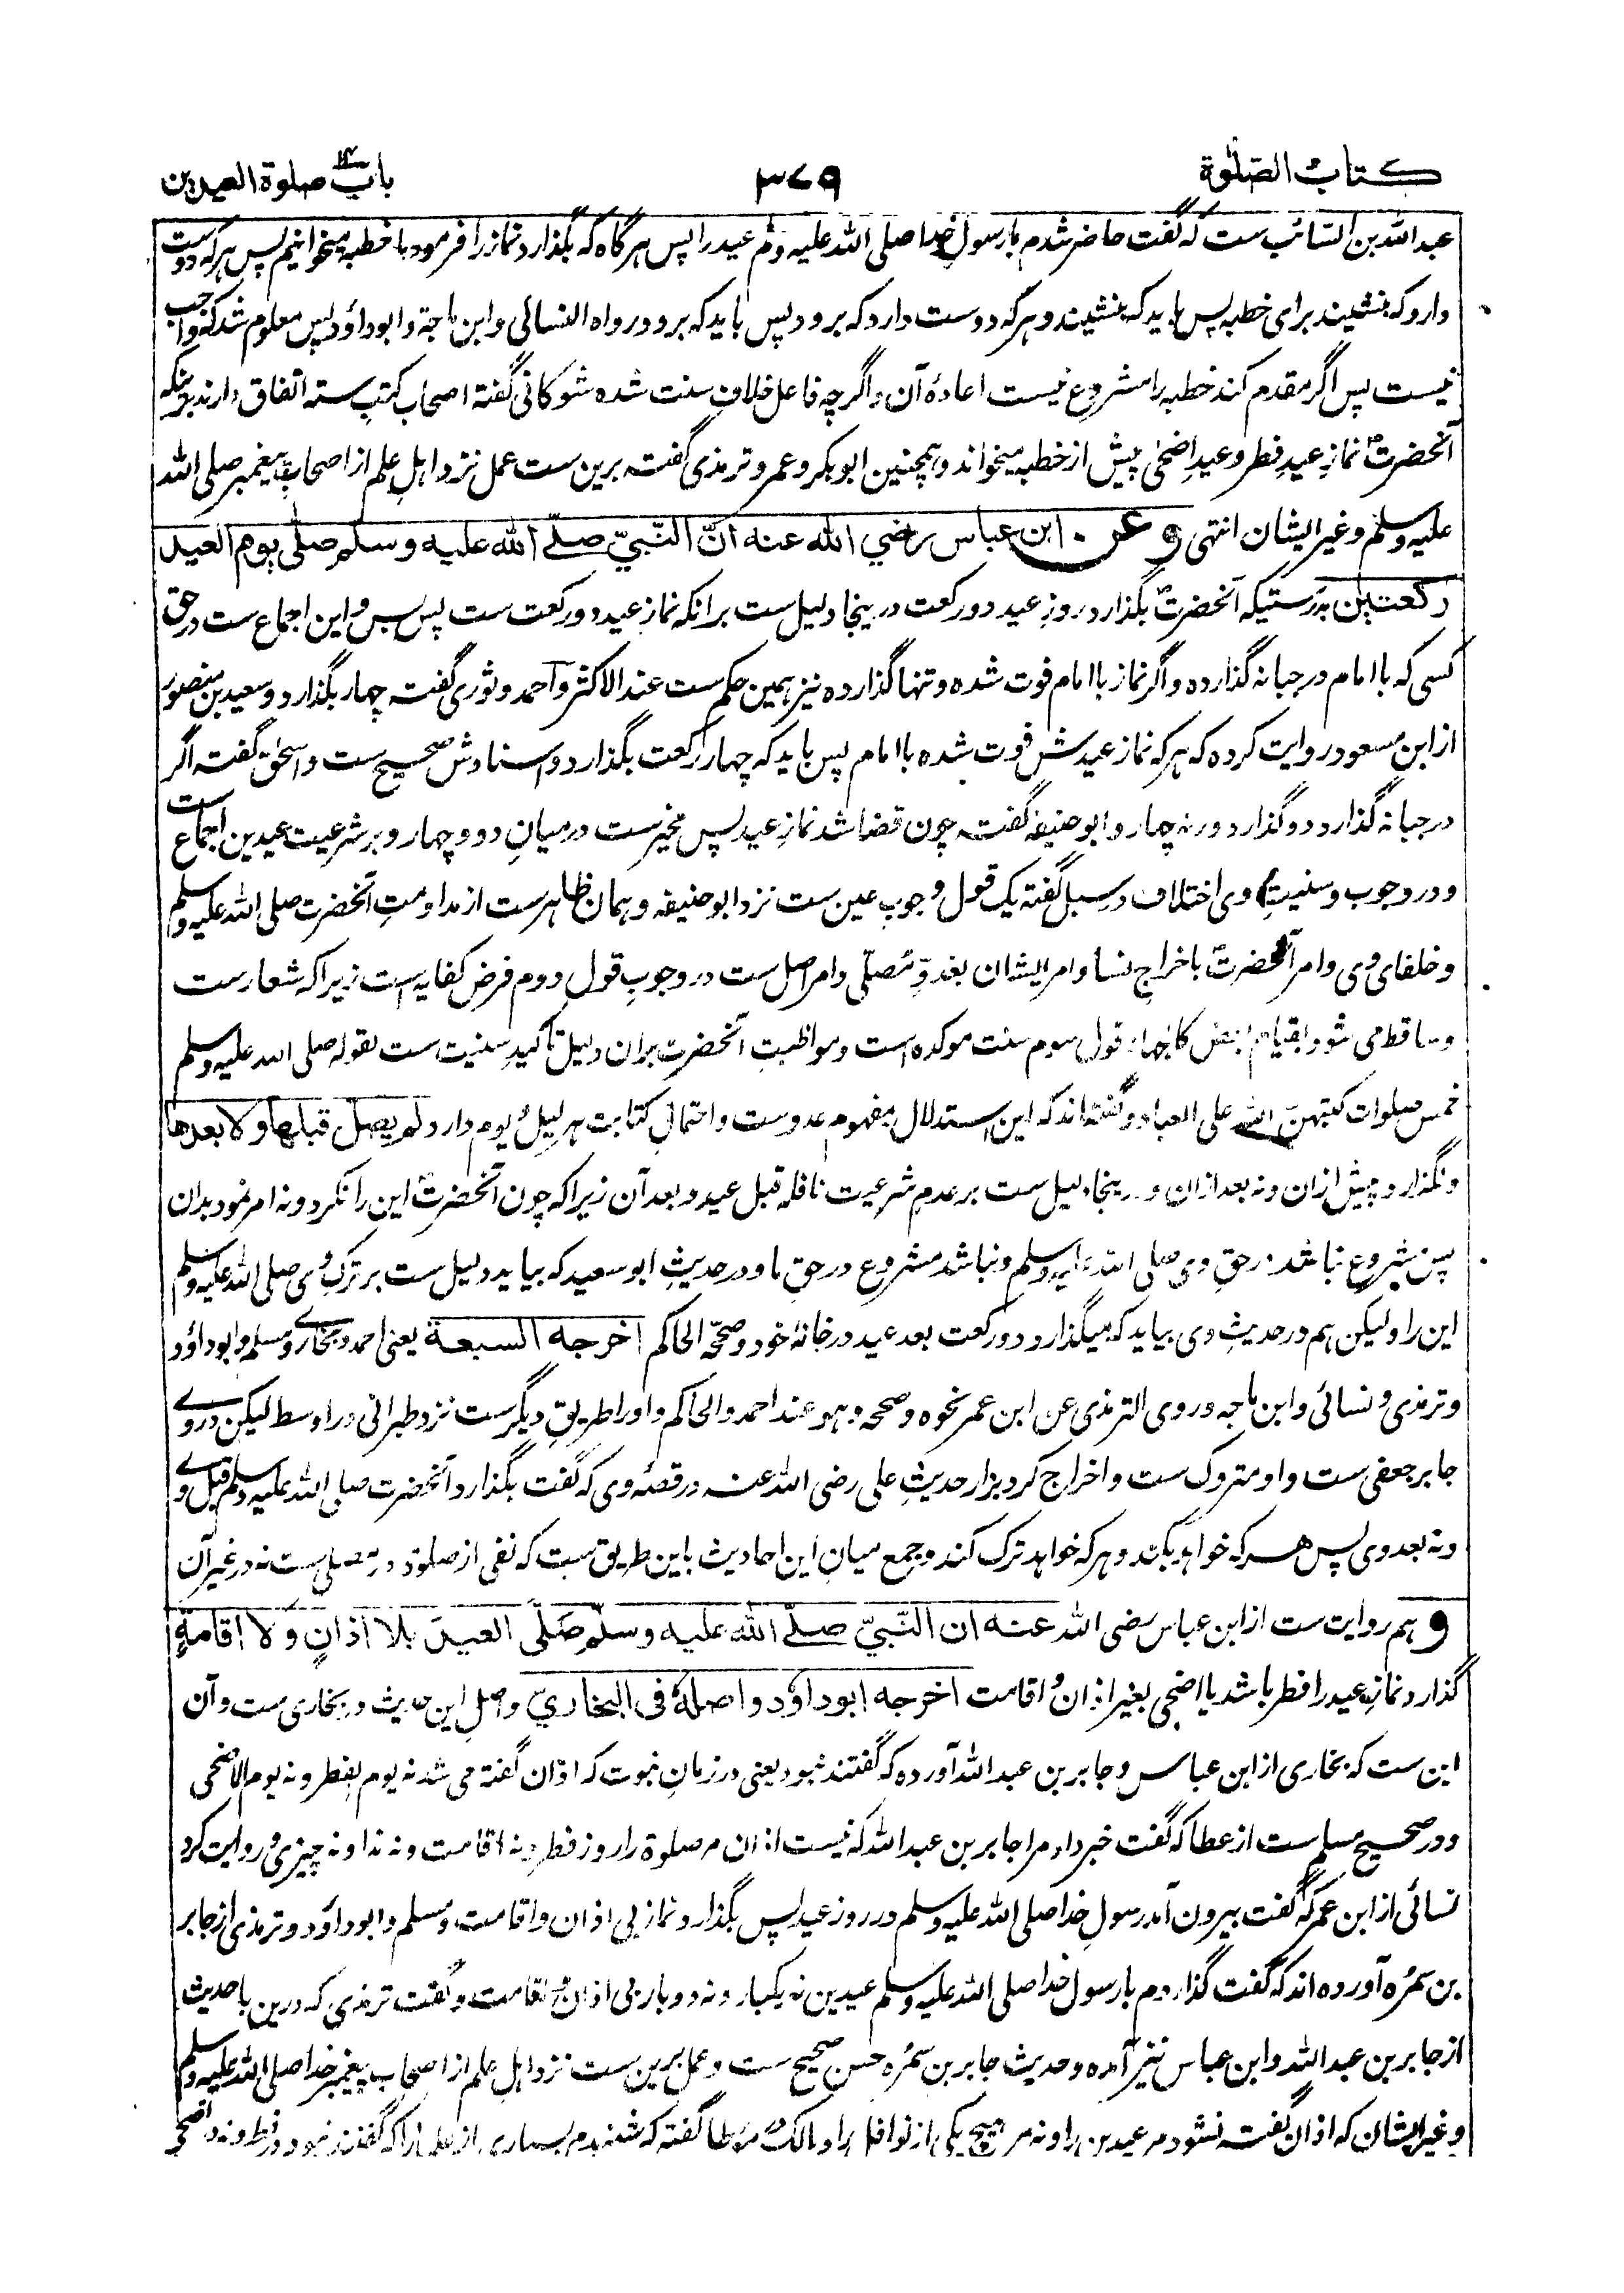 کتاب الصلوة ۳۷۹ باب صلوة العیدین
عبد الله بن السائب ست که گفت حاضر شدم با رسول خدا صلی الله علیه وسلم عید را پس هرگاه که بگذارد نماز را فرمود ما خطبه میخوانیم پس هرکه دوست
دارد که بنشیند برای خطبه پس باید که بنشیند و هرکه دوست دارد که برود پس باید که برود رواه النسائی و ابن ماجة و ابوداؤد پس معلوم شد که واجب
نیست پس اگر مقدم کند خطبه را مشروع نیست اعادهٔ آن و اگرچه فاعل خلاف سنت شده شوکانی گفته اصحاب کتب سته اتفاق دارند برینکه
آنحضرتؐ نمازِ عیدِ فطر و عیدِ اضحی پیش از خطبه میخواند و همچنین ابوبکر و عمر و ترمذی گفته برین ست عمل نزد اهلِ علم از اصحابِ پیغمبر صلی الله
علیه وسلم و غیر ایشان انتهی وعن ابن عباس رضي الله عنه انّ النّبيّ صلّی الله علیه وسلم صلّی یوم العید
رکعتین بدرستیکه آنحضرتؐ بگذارد روزِ عید دو رکعت درینجا دلیل ست برانکه نمازِ عید دو رکعت ست پس و بس و این اجماع ست در حق
کسی که با امام در جبانه گذارده و اگر نماز با امام فوت شده و تنها گذارده نیز همین حکم ست عند الاکثر و احمد و ثوری گفته چهار بگذارد و سعید بن منصور
از ابن مسعود روایت کرده که هرکه نماز عیدش فوت شده با امام پس باید که چهار رکعت بگذارد و اسنادش صحیح ست و اسحٰق گفته اگر
در جبانه گذارد دو گذارد ورنه چهار و ابوحنیفه گفته چون قضا شد نمازِ عید پس مخیر ست درمیانِ دو و چهار و بر شرعیت عیدین اجماع ست
و در وجوب و سنیتِ وی اختلاف در سبل گفته یک قول وجوبِ عین ست نزد ابوحنیفه و همان ظاهر ست از مداومتِ آنحضرت صلی الله علیه وسلم
و خلفای وی و امر آنحضرتؐ باخراجِ نسا و امر ایشان بغدوِّ مُصلّی و امر اصل ست در وجوب قولِ دوم فرض کفایه است زیرا که شعار ست
و ساقط می شود بقیامِ بعض کالجهاد قول سوم سنت موکده است و مواظبتِ آنحضرت بران دلیل تاکیدِ سنیت ست لقوله صلی الله علیه وسلم
خمس صلوات کتبهنّ الله علی العباد و گفته اند که این استدلال بمفهومِ عدد ست و احتمالِ کتابت هر لیل و یوم دارد لم یصل قبلها ولا بعدها
و نگذارد پیش ازان و نه بعد ازان و درینجا دلیل ست بر عدمِ شرعیت نافله قبل عید و بعد آن زیرا که چون آنحضرتؐ این را نکرد و نه امر نمود بدان
پس مشروع نباشد در حقِ وی صلی الله علیه وسلم و نباشد مشروع در حقِ ما و در حدیثِ ابو سعید که بیاید دلیل ست بر ترکِ وی صلی الله علیه وسلم
این را ولیکن هم در حدیثِ وی بیاید که میگذارد دو رکعت بعد عید در خانهٔ خود و صححه الحاکم اخرجه السبعة یعنی احمد و بخاری و مسلم و ابوداؤد
و ترمذی و نسائی و ابن ماجه و روی الترمذی عن ابن عمر نحوه و صححه و هو عند احمد و الحاکم و او را طریقِ دیگر ست نزد طبرانی در اوسط لیکن در وے
جابر جعفی ست و او متروک ست و اخراج کرد بزار حدیثِ علی رضی الله عنه در قصهٔ وی که گفت بگذارد آنحضرت صلی الله علیه وسلم قبل وے
و نه بعد وی پس هرکه خواهد بکند و هرکه خواهد ترک کند و جمع میانِ این احادیث باین طریق ست که نفی از صلوة در مصلی ست نه در غیر آن
و هم روایت ست از ابن عباس رضی الله عنه ان النّبيّ صلّی الله علیه وسلّم صَلّی العیدَ بلا اذانٍ وَلا اقامةٍ
گذارد نمازِ عید را فطر باشد یا اضحی بغیر اذان و اقامت اخرجه ابوداؤد واصلهٗ فی البخاريّ و اصلِ این حدیث در بخاری ست و آن
این ست که بخاری از ابن عباس و جابر بن عبد الله آورده که گفتند نبود یعنی در زمانِ نبوت که اذان گفته می شد نه یوم الفطر و نه یوم الاضحی
و در صحیح مسلم ست از عطا که گفت خبر داد مرا جابر بن عبد الله که نیست اذان مر صلوة را روز فطر و نه اقامت و نه ندا و نه چیزی و روایت کرد
نسائی از ابن عمر که گفت بیرون آمد رسولِ خدا صلی الله علیه وسلم در روز عید پس بگذارد نماز بی اذان و اقامت و مسلم و ابوداؤد و ترمذی از جابر
بن سمُره آورده اند که گفت گذاردم با رسول خدا صلی الله علیه وسلم عیدین نه یکبار و نه دو بار بی اذان و اقامت و گفت ترمذی که درین باب حدیث
از جابر بن عبد الله و ابن عباس نیز آمده و حدیث جابر بن سمُره حسن صحیح ست و عمل برین ست نزد اهلِ علم از اصحابِ پیغمبر خدا صلی الله علیه وسلم
و غیر ایشان که اذان گفته نشود مر عیدین را و نه مر هیچ یکی از نوافل را و مالک در موطا گفته که شنیدم بسیاری از علما را که گفتند نبود در فطر و نه در اضحی